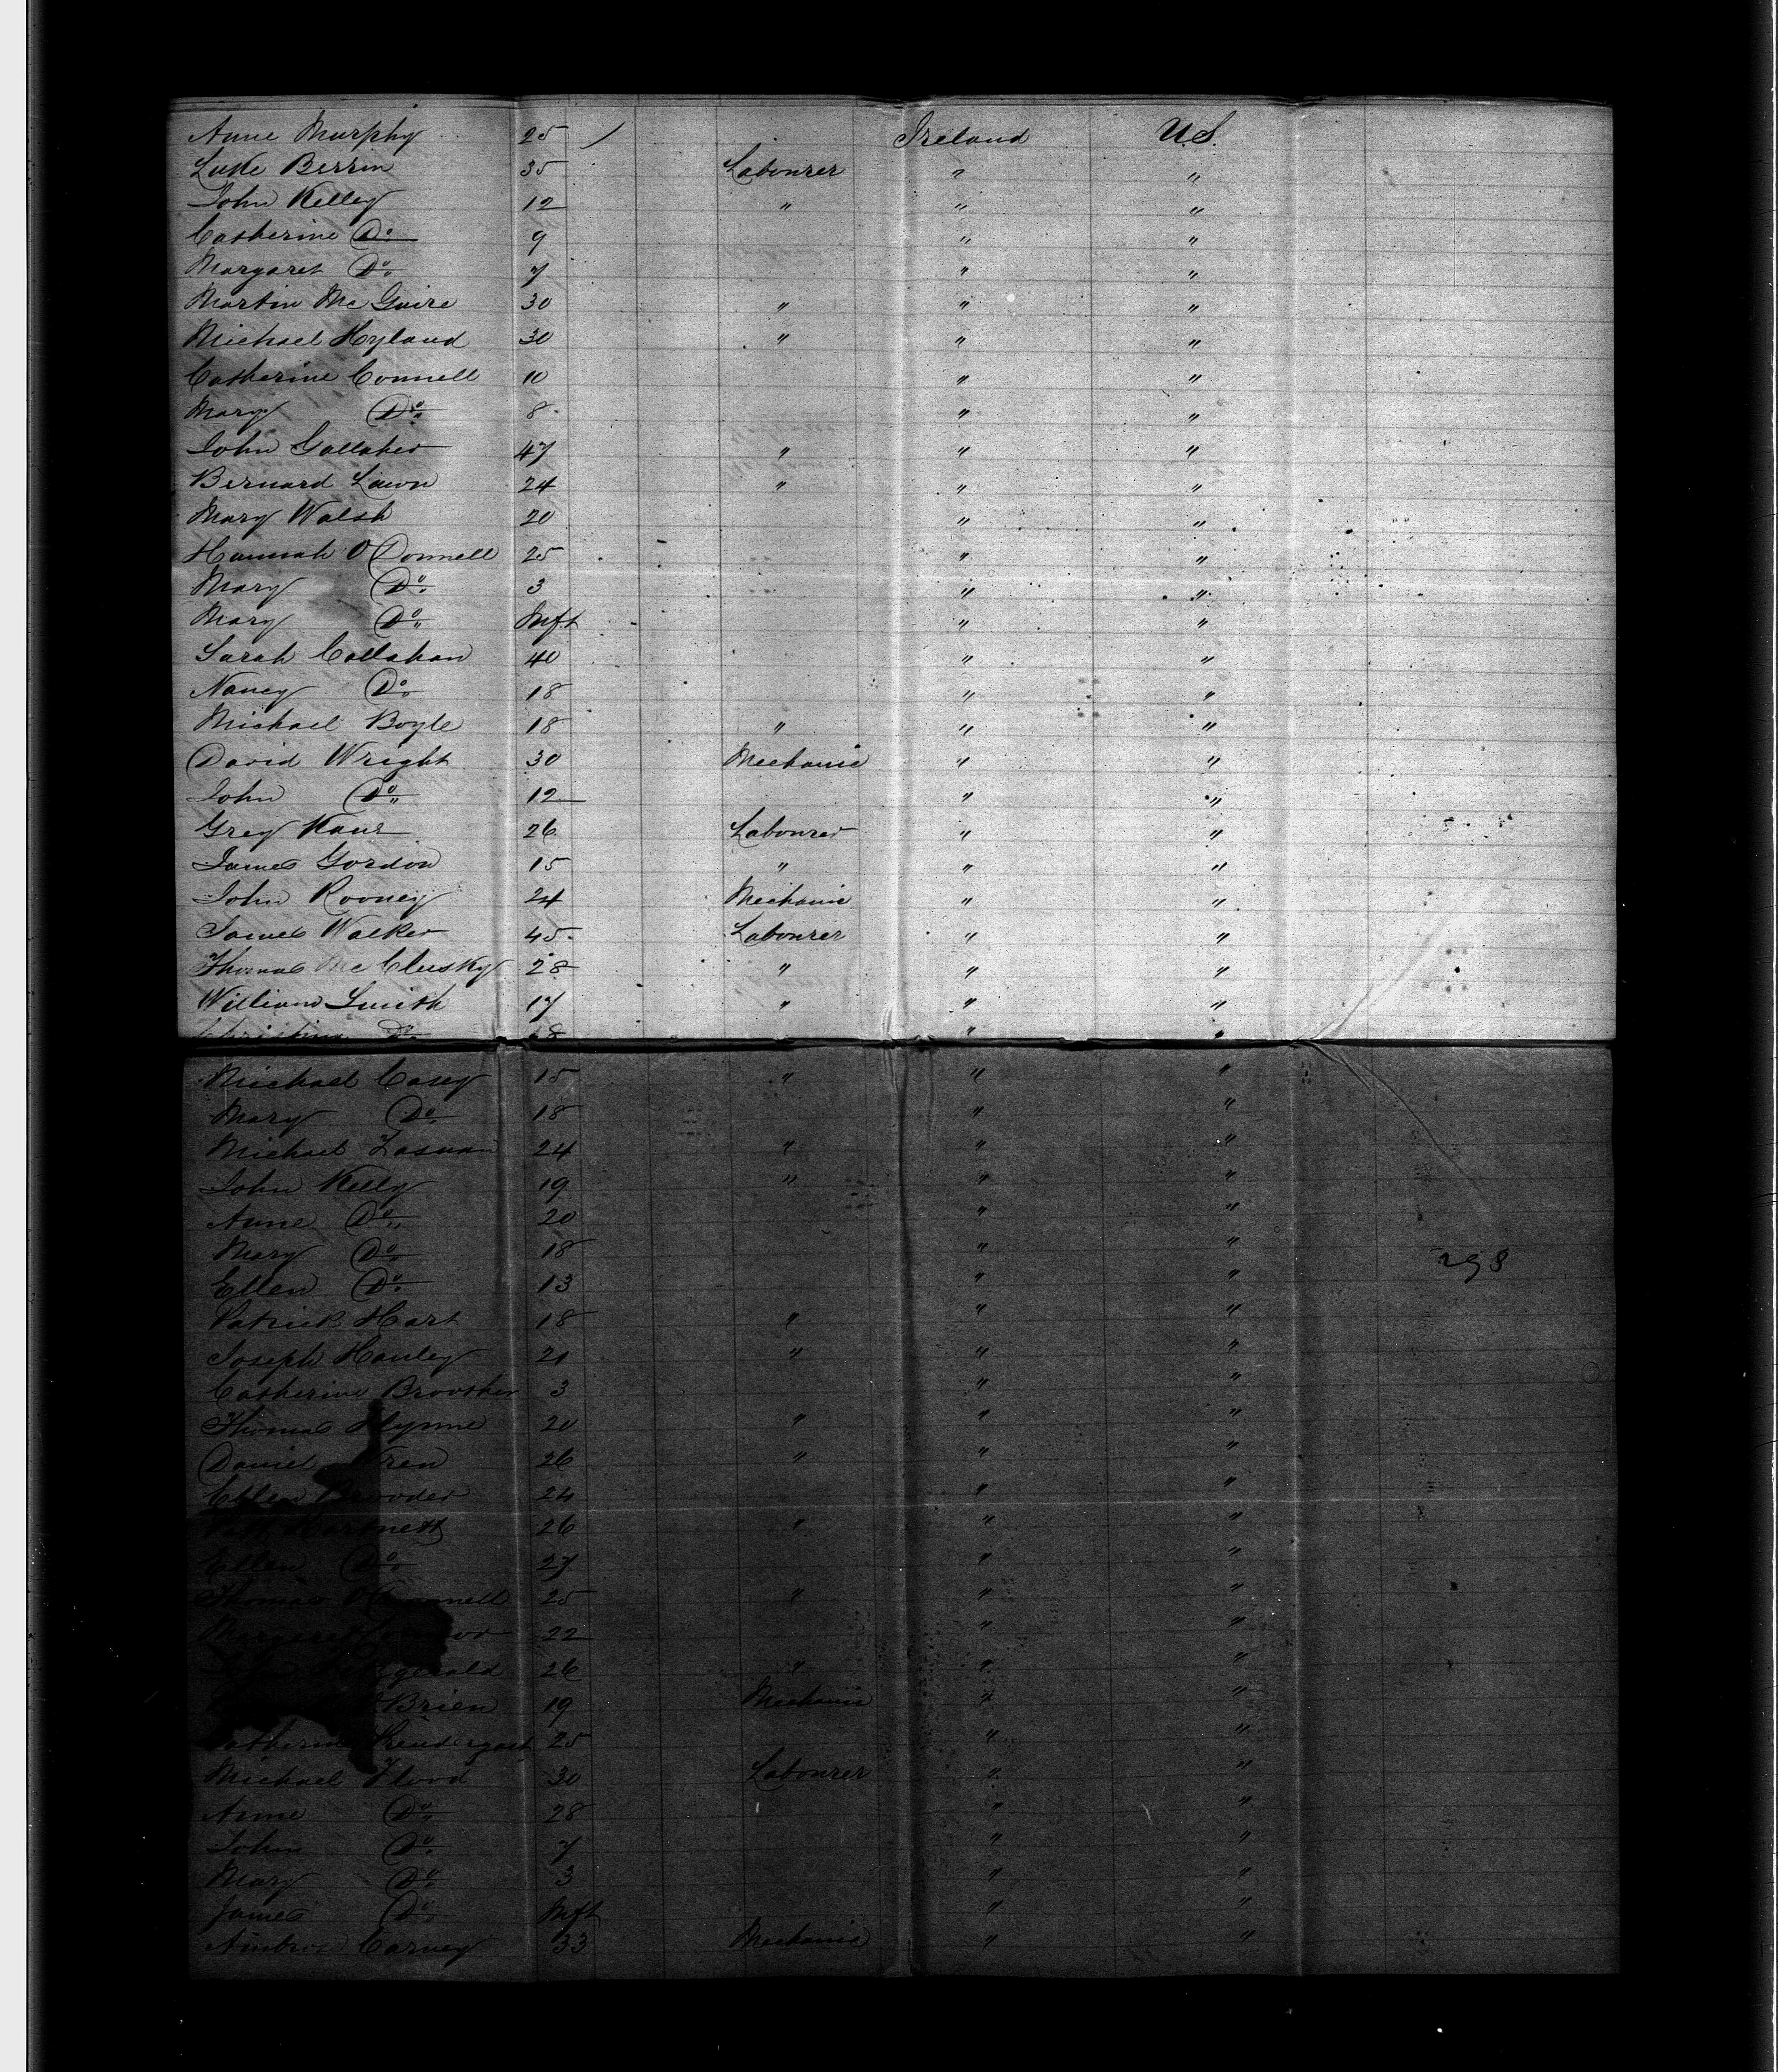 Anne Murphy 25 / Ireland U.S.
Luke Berrin 35 Labourer " "
John Kelley 12 " " "
Catherine Do 9 " "
Margaret Do 7 " "
Martin McGuire 30 " " "
Michael Hyland 30 " " "
Catherine Connell 10 " "
Mary Do 8 " "
John Gallaher 47 " " "
Bernard Lawn 24 " " "
Mary Walsh 20 " "
Hannah O'Donnell 25 " "
Mary Do 3 " "
Mary Do Inft " "
Sarah Callahan 40 " "
Nancy Do 18 " "
Michael Boyle 18 " " "
David Wright 30 Mechanic " "
John Do 12 " "
Grey 26 Labourer " "
James Gordon 15 " " "
John Rooney 24 Mechanic " "
James Walker 45 Labourer " "
Thomas McClusky 28 " " "
William Smith 17 " " "
Christina Do 18 " "
Michael Casey 15 " " "
Mary Do 18 " "
Michael 24 " " "
John Kelly 19 " " "
Anne Do 20 " "
Mary Do 18 " "
Ellen Do 13 " "
298
Patrick Hart 18 " " "
Joseph Hanley 21 " " "
Catherine 3 " "
Thomas Flynne 20 " " "
Daniel 26 " " "
Ellen 24 " "
Hartnett 26 " " "
Ellen Do 27 " "
Thomas 25 " " "
Margaret 22 " "
Fitzgerald 26 " " "
O'Brien 19 Mechanic " "
Catherine Prendergast 25 " "
Michael Flood 30 Labourer " "
Anne Do 28 " "
John Do 7 " "
Mary Do 3 " "
James Do Inft " "
Ambrose Carney 33 Mechanic " "